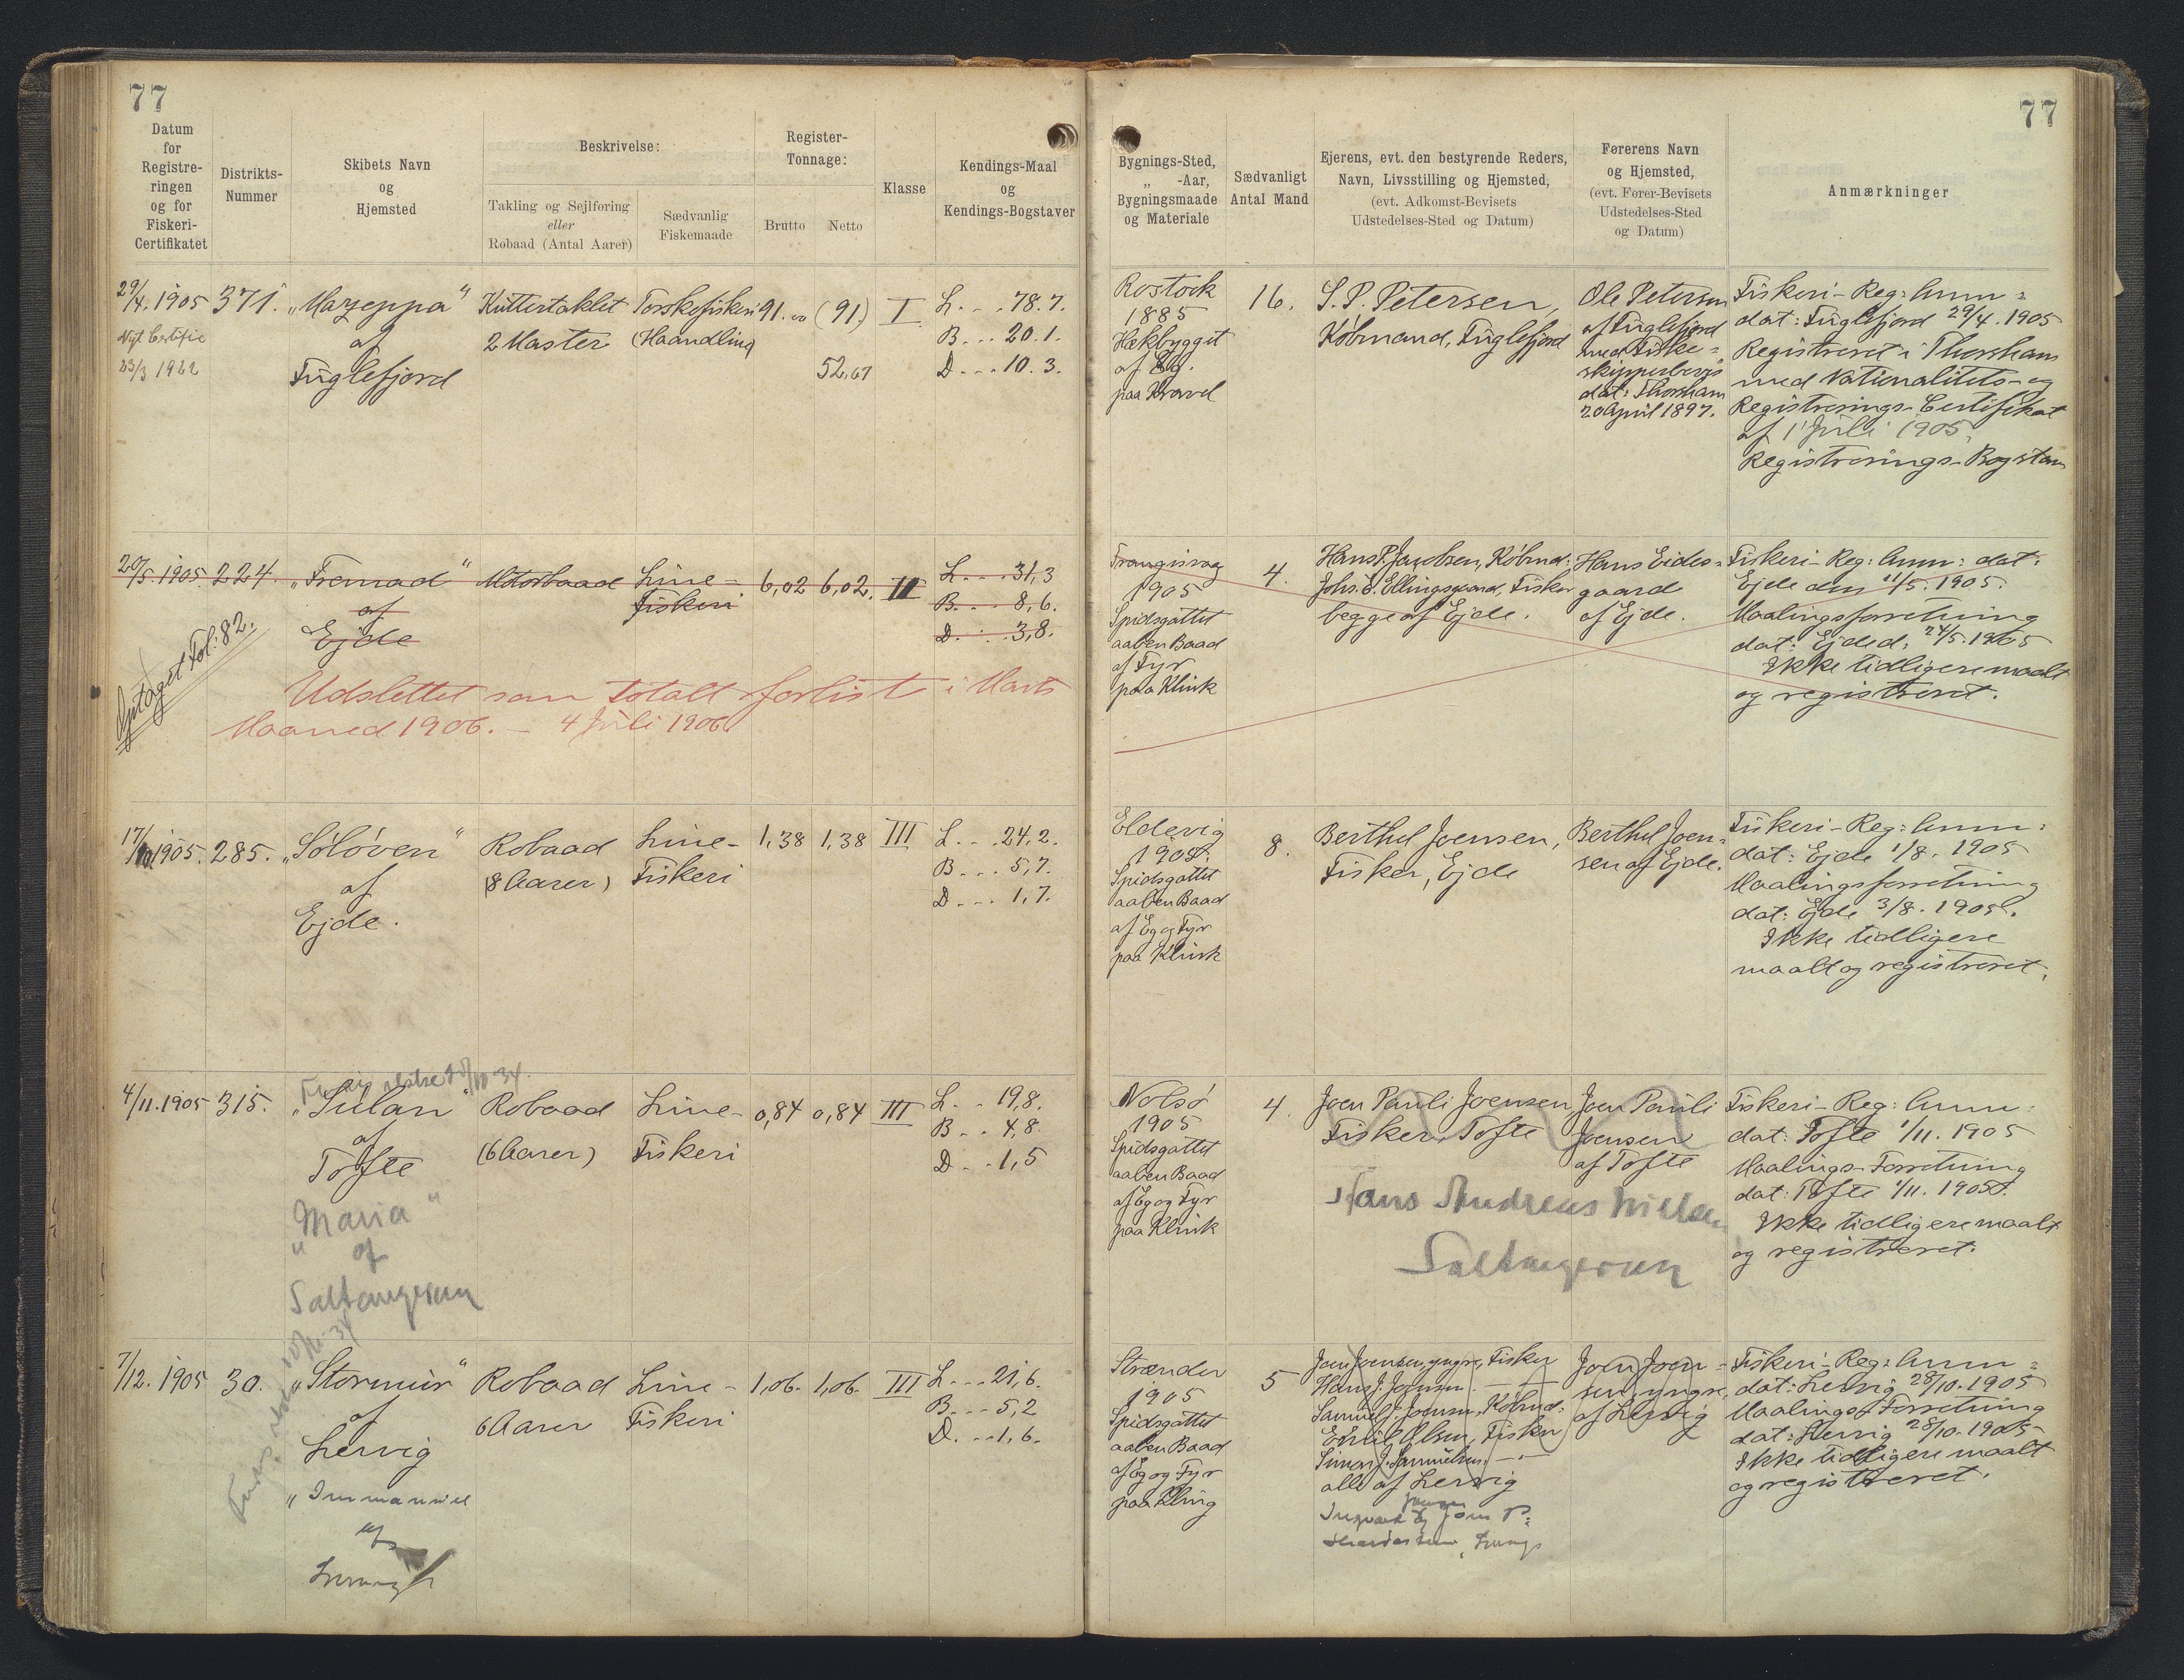 77
77
Datum
for
Registre-
ringen
og for
Fiskeri-
Certifikatet
Distrikts-
Nummer
Skibets Navn
og
Hjemsted
Beskrivelse:
Takling og Sejlføring
eller
Robaad (Antal Aarer)
Sædvanlig
Fiskemaade
Register-
Tonnage:
Brutto
Netto
Klasse
Kendings-Maal
og
Kendings-Bogstaver
Bygnings-Sted,
„ -Aar,
Bygningsmaade
og Materiale
Sædvanligt
Antal Mand
Ejerens, evt. den bestyrende Reders,
Navn, Livsstilling og Hjemsted,
(evt. Adkomst-Bevisets
Udstedelses-Sted og Datum)
Førerens Navn
og Hjemsted,
(evt. Fører-Bevisets
Udstedelses-Sted
og Datum)
Anmærkninger
29/4. 1905
Nyt Certific
23/3 1922
371.
„Mazeppa“
af
Fuglefjord
Kuttertaklet
2 Master
Torskefiskeri
(Haandline)
91.00
(91)
52,67
I
L. . . 78.7.
B. . . 20.1.
D. . . 10.3.
Rostock
1885
Hækbygget
af Eg.
paa Kravel
16.
S. P. Petersen,
Købmand, Fuglefjord
Ole Petersen
af Fuglefjord
med Fiske=
skipperbevis
dat: Thorshavn
20 April 1897.
Fiskeri-Reg: Anm=
dat: Fuglefjord 29/4. 1905
Registreret i Thorshavn
med Nationalitets- og
Registrerings-Certifikat
af 1 Juli 1905,
Registrerings-Bogstav
20/5. 1905
224.
„Fremad“
af
Ejde
Motorbaad
Line-
fiskeri
6,02
6,02.
II
L. . . 31,3
B. . . 8,6.
D. . . 3,8.
Optaget Fol: 82.
Udslettet som totalt forlist i Marts
Maaned 1906. – 4 Juli 1906
Trangisvag
1905
Spidsgattet
aaben Baad
af Fyr
paa Klink
4.
Hans P. Jacobsen, Købmd:
Johs. E. Ellingsgaard, Fisker
begge af Ejde.
Hans Eides=
gaard
af Ejde.
Fiskeri-Reg: Anm: dat:
Ejde den 11/5. 1905.
Maalingsforretning
dat: Ejde d. 24/5. 1905
Ikke tidligere maalt
og registreret.
17/10 1905.
285.
„Søløven“
af
Ejde.
Robaad
(8 Aarer)
Line-
Fiskeri
1,38
1,38
III
L. . . 24,2.
B. . . 5,7.
D. . . 1,7.
Eldevig
1905.
Spidsgattet
aaben Baad
af Eg og Fyr
paa Klink
8.
Berthel Joensen,
Fisker, Ejde
Berthel Joen=
sen af Ejde.
Fiskeri-Reg: Anm:
dat: Ejde 1/8. 1905
Maalingsforretning
dat: Ejde 3/8. 1905.
Ikke tidligere
maalt og registreret.
4/11. 1905
315.
„Sulan“
af
Tofte
„Maria“
af
Saltangeraa
Robaad
(6 Aarer)
Line-
Fiskeri
0,84
0,84
III
L. . 19,8.
B. . 4,8.
D. . 1,5
Nolsø
1905
Spidsgattet
aaben Baad
af Eg og Fyr
paa Klink
4.
Joen Pauli Joensen
Fisker, Tofte
Hans Andreas
Joen Pauli
Joensen
af Tofte
Fiskeri-Reg: Anm:
dat: Tofte 1/11. 1905
Maalings-Forretning
dat: Tofte 1/11. 1905.
Ikke tidligere maalt
og registreret.
7/12. 1905
30.
„Stormur“
af
Lervig
„Immanuel
af
Robaad
6 Aarer
Line-
Fiskeri
1,06.
1,06.
III
L. . . 21,6.
B. . . 5,2
D. . . 1,6.
Strænder
1905
Spidsgattet
aaben Baad
af Eg og Fyr
paa Kling
5
Joen Joensen, yngre, Fisker
Hans J. Joensen. – „ –
Samuel J. Joensen, Købmd:
Emil Olsen, Fisker
Simon J. Samuelsen, – „ –
alle af Lervig
Joen Joen=
sen, yngre,
af Lervig
Fiskeri-Reg: Anm=
dat: Lervig 28/10. 1905
Maalings-Forretning
dat: Lervig 28/10. 1905
Ikke tidligere maalt
og registreret.